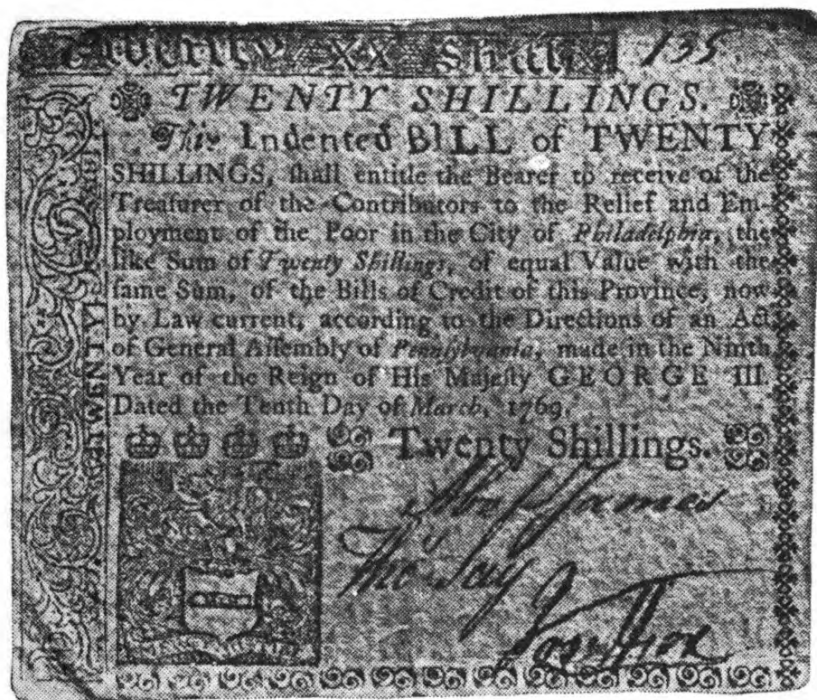 Twenty XX Shill. 135
TWENTY SHILLINGS.
This Indented BILL of TWENTY
SHILLINGS, ſhall entitle the Bearer to receive of the
Treaſurer of the Contributors to the Relief and Em-
ployment of the Poor in the City of Philadelphia, the
like Sum of Twenty Shillings, of equal Value with the
ſame Sum, of the Bills of Credit of this Province, now
by Law current, according to the Directions of an Act
of General Aſſembly of Pennſylvania, made in the Ninth
Year of the Reign of His Majeſty GEORGE III.
Dated the Tenth Day of March, 1769.
TWENTY
Twenty Shillings.
James
Tho